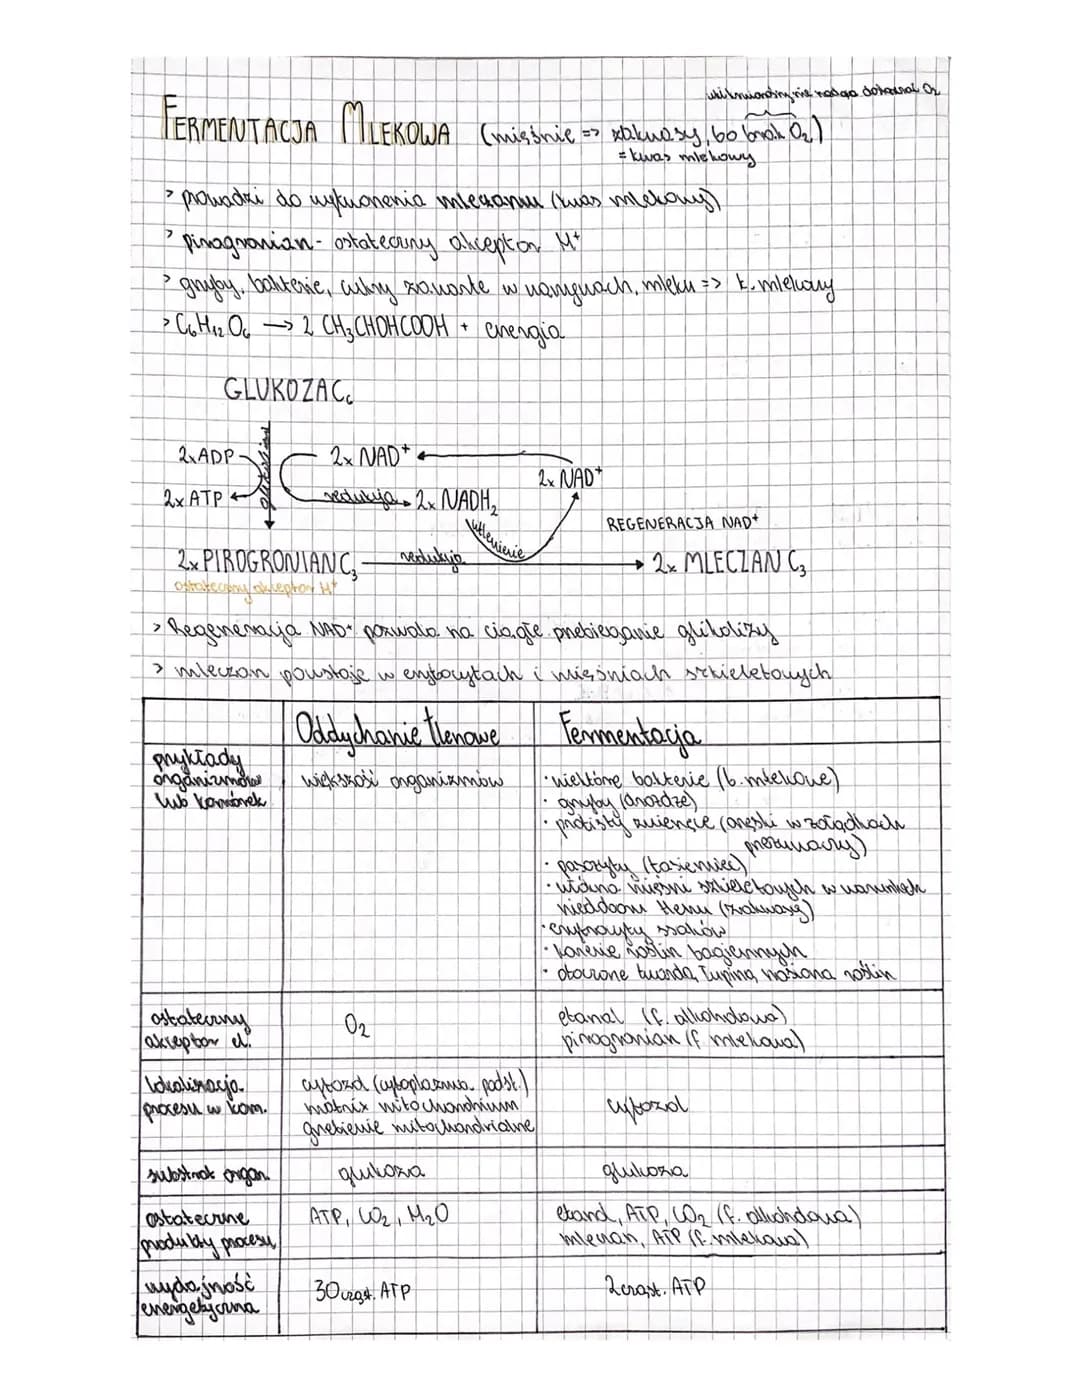 nie nadąża dotarcać O₂
FERMENTACJA MLEKOWA (mięśnie => zakwasy, bo brak O₂)
= kwas mlekowy
> prowadzi do wytworzenia mleczanu (kwas mlekowy)
> pirogronian - ostateczny akceptor H⁺
> grzyby, bakterie, cukry zawarte w warzywach, mleku => k. mlekowy
> C₆H₁₂O₆ → 2 CH₃CHOHCOOH + energia
GLUKOZA C₆
glikoliza
2x ADP
2x NAD⁺
2x NAD⁺
2x ATP
redukcja
2x NADH₂
utlenienie
REGENERACJA NAD⁺
2x PIROGRONIAN C₃
redukcja
2x MLECZAN C₃
ostateczny akceptor H⁺
> Regeneracja NAD⁺ pozwala na ciągłe przebieganie glikolizy
> mleczan powstaje w erytrocytach i mięśniach szkieletowych
Oddychanie tlenowe
Fermentacja
przykłady
organizmów
lub komórek
większość organizmów
· niektóre bakterie (b. mlekowe)
· grzyby (drożdże)
· protisty zwierzęce (orzęski w żołądkach
przeżuwaczy)
· pasożyty (tasiemiec)
· włókna mięśni szkieletowych w warunkach
niedoboru tlenu (zakwasy)
· erytrocyty ssaków
· korzenie roślin bagiennych
· otoczone twardą łupiną nasiona roślin
ostateczny
akceptor el.
O₂
etanal (f. alkoholowa)
pirogronian (f. mlekowa)
lokalizacja
procesu w kom.
cytozol (cytoplazma podst.)
matrix mitochondrium
grzebienie mitochondrialne
cytozol
substrat organ.
glukoza
glukoza
ostateczne
produkty procesu
ATP, CO₂, H₂O
etanol, ATP, CO₂ (f. alkoholowa)
mleczan, ATP (f. mlekowa)
wydajność
energetyczna
30 cząst. ATP
2 cząst. ATP